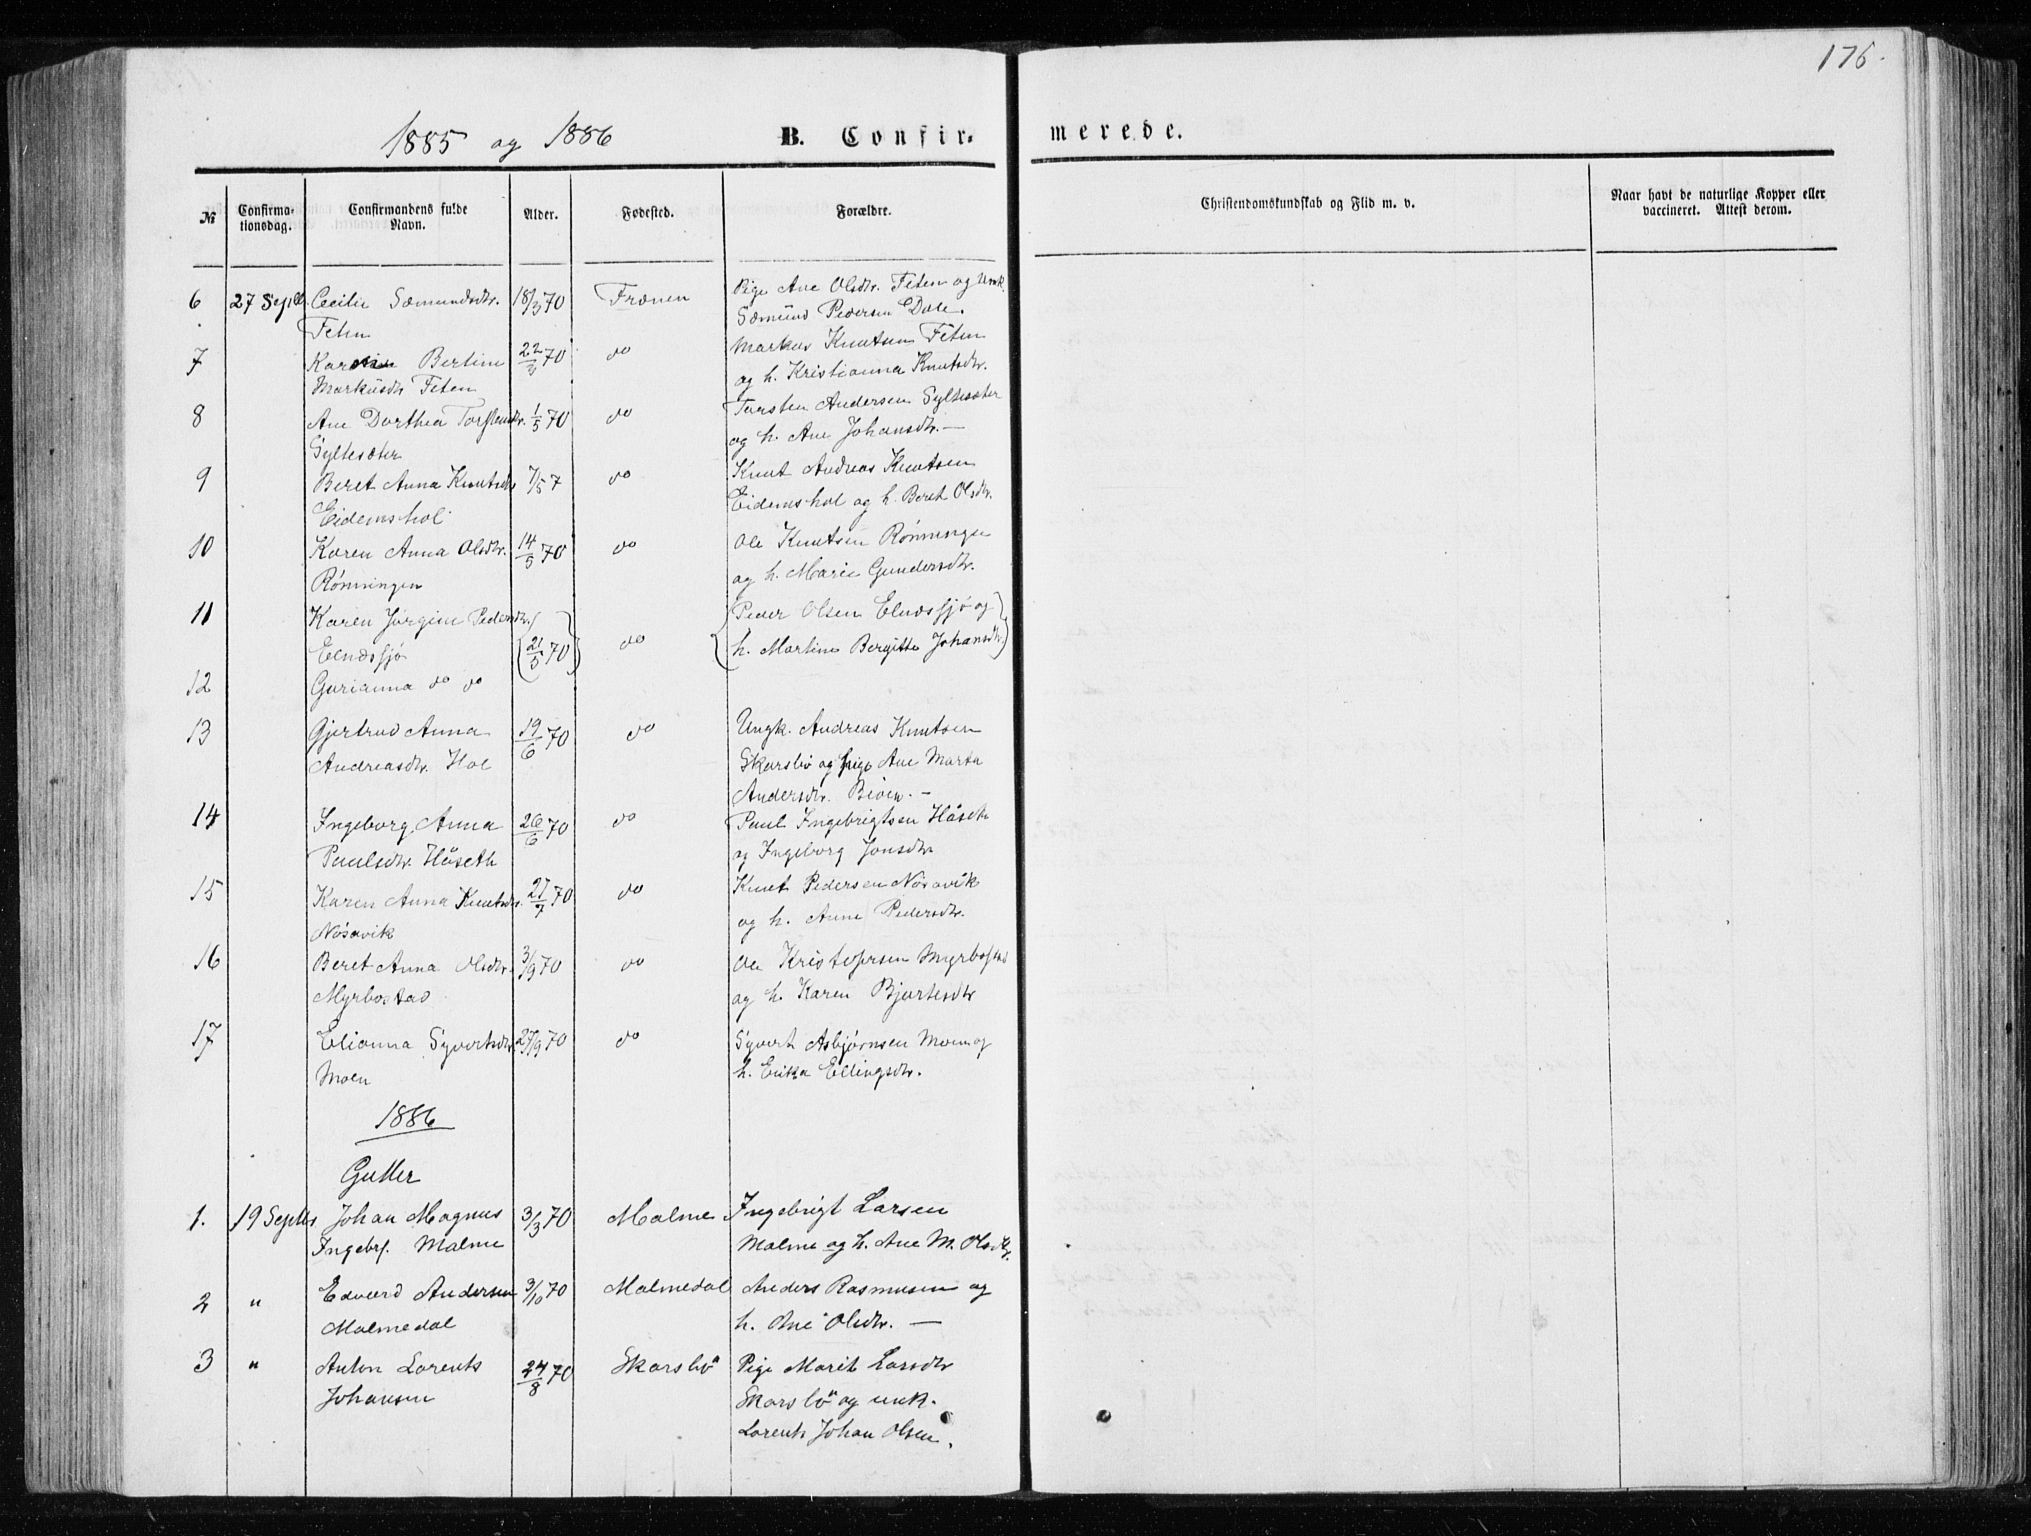 176.
1885 og 1886 B. Confir- merede.
№ Confirma-tionsdag. Confirmandens fulde Navn. Alder. Fødested. Forældre. Christendomskundskab og Flid m. v. Naar havt de naturlige Kopper eller vaccineret. Attest derom.
6 27 Septb. Cecilie Sæmundsdtr. 18/3 70 Frænen Pige Ane Olsdtr. Feten og Unk.
Feten Sæmund Pedersen Dale.
7 Bertine 22/3 70 do Markus Knutsen Feten
Markusdtr Feten og h. Kristianna Knutsdtr.
8 Ane Dorthea Torstensdtr. 1/5 70 do Torsten Andersen Syltesæter
Syltesæter og h. Ane Johansdtr. —
9 Beret Anna Knutsdtr 7/5 7 do Knut Andreas Knutsen
Eidemshol Eidemshol og h. Beret Olsdtr.
10 Karen Anna Olsdtr. 14/5 70 do Ole Knutsen Rønningen
Rønningen og h. Marie Gundersdtr.
11 Karen Jørgine Pedersdtr. Peder Olsen Elnæssjø og
Elnæssjø 21/5 70 do h. Martine Bergitte Johansdtr.
12 Gurianna do do
13 Gjertrud Anna 19/6 70 do Ungk. Andreas Knutsen
Andreasdtr. Hol Skarsbø og pige Ane Marta
Andersdtr.
14 Ingeborg Anna 26/6 70 do Paul Ingebrigtsen Håseth
Paulsdtr. Håseth og Ingeborg Jonsdtr
15 Karen Anna Knutsdtr. 27/7 70 do Knut Pedersen Nøsavik
Nøsavik og h. Anne Pedersdtr.
16 Beret Anna Olsdtr. 3/9 70 do Ole Kristofersen Myrbostad
Myrbostad og h. Karen Bjertesdtr
17 Elianna Syvertsdtr. 27/9 70 do Syvert Asbjørnsen Moen og
Moen h. Erika Ellingsdtr.
1886
Gutter
1. 19 Septbr Johan Magnus 3/3 70 Malme Ingebrigt Larsen
Ingebr. Malme Malme og h. Ane M. Olsdtr.
2 " Edvard Andersen 3/10 70 Malmedal Anders Rasmusen og
Malmedal h. Ane Olsdtr. —
3 " Anton Lorents 24/8 70 Skarsbø Pige Marit Larsdtr
Johansen Skarsbø og unk.
Lorents Johan Olsen.